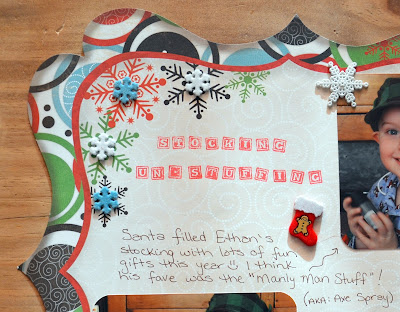 STOCKING
UN-STUFFING
Santa filled Ethan's
stocking with lots of fun
gifts this year☺ I think
his fave was the "Manly Man Stuff"!
(AKA: Axe Spray)